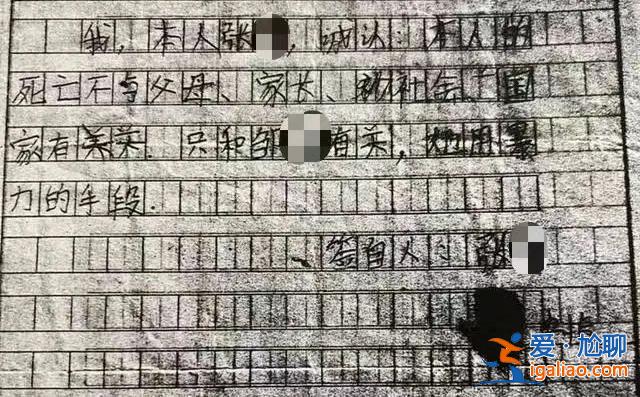 我,本人张,诚认:本人的
死亡不与父母、家长、和社会、国
家有关关.只和邹有关,她用暴
力的手段.
签自人:张
爱·尬聊
igaliao.com